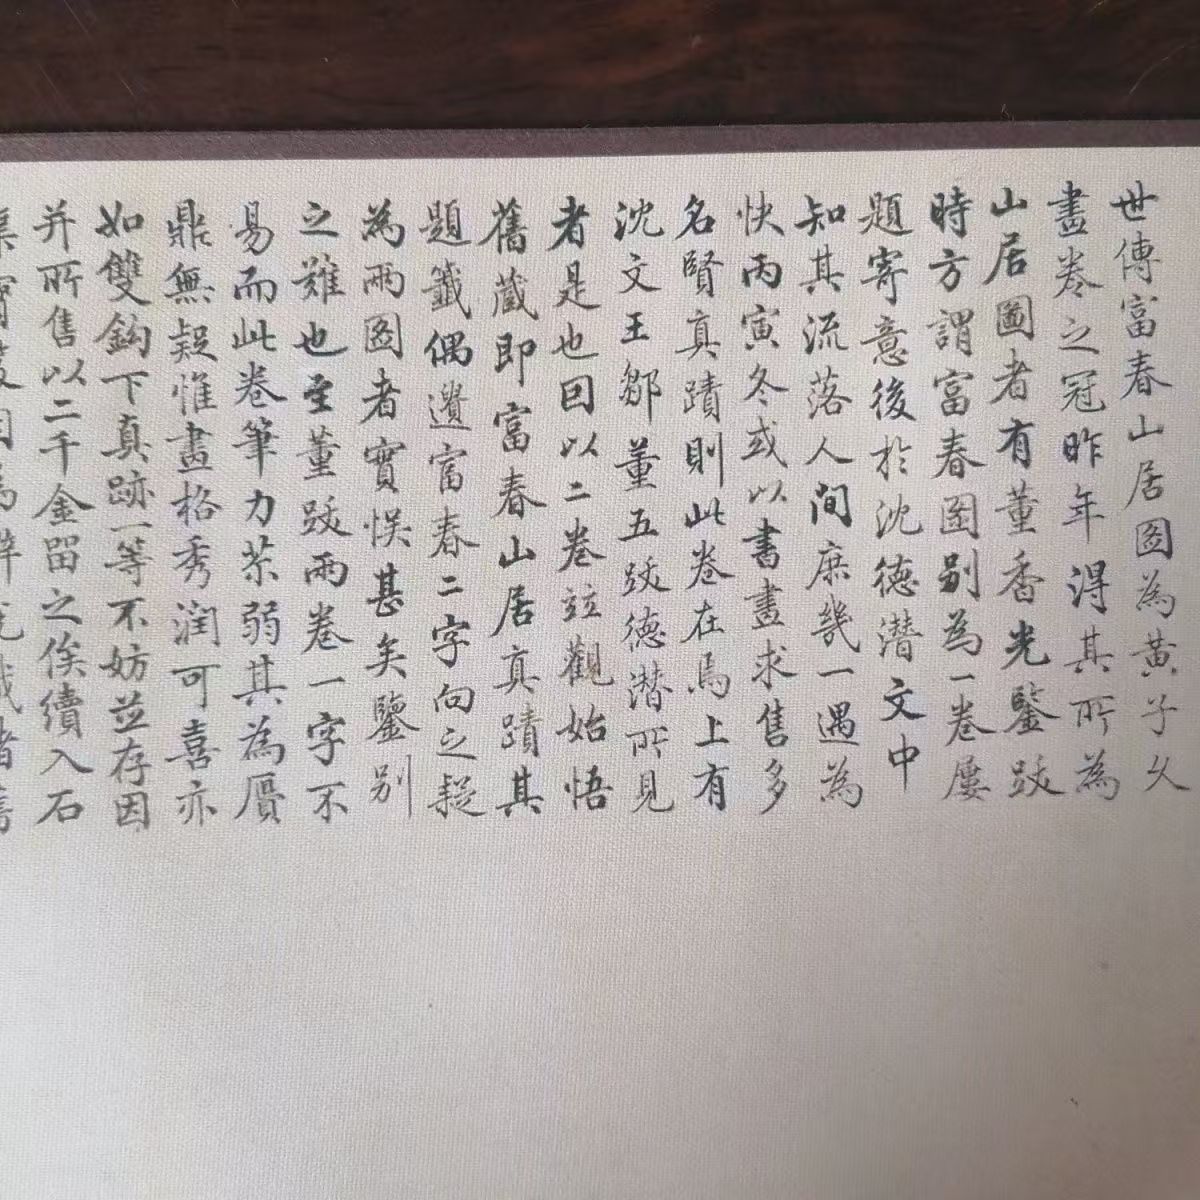 世傳富春山居圖為黃子久
畫卷之冠昨年得其所為
山居圖者有董香光鑒跋
時方謂富春圖别為一卷屢
題寄意後於沈德潛文中
知其流落人間庶幾一遇為
快丙寅冬或以書畫求售多
名賢真蹟則此卷在焉上有
沈文王鄒董五跋德潛所見
者是也因以二卷竝觀始悟
舊藏即富春山居真蹟其
題籤偶遺富春二字向之疑
為兩圖者實悮甚矣鑒别
之難也至董跋兩卷一字不
易而此卷筆力苶弱其為贗
鼎無疑惟畫格秀潤可喜亦
如雙鈎下真跡一等不妨並存因
并所售以二千金留之俟續入石